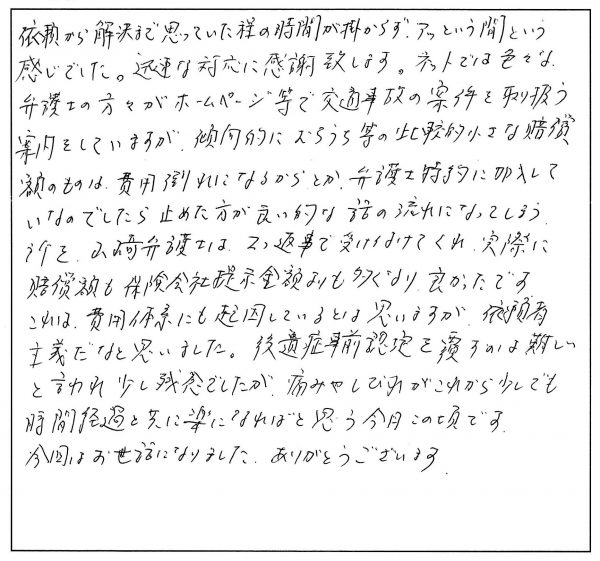 依頼から解決まで思っていた程の時間が掛からず、アッという間という
感じでした。迅速な対応に感謝致します。ネットでは色々な
弁護士の方々がホームページ等で交通事故の案件を取り扱う
案内をしていますが、傾向的にむちうち等の比較的小さな賠償
額のものは、費用倒れになるからとか、弁護士特約に加入して
いなのでしたら止めた方が良い的な話の流れになってしまう
所を、山﨑弁護士は、二つ返事で受け付けてくれ、実際に
賠償額も保険会社提示金額よりも多くなり、良かったです
これは、費用体系にも起因しているとは思いますが、依頼者
主義だなと思いました。後遺症事前認定を覆すのは難しい
と言われ少し残念でしたが、痛みやしびれがこれから少しでも
時間経過と共に楽になればと思う今日この頃です。
今回はお世話になりました。ありがとうございます。